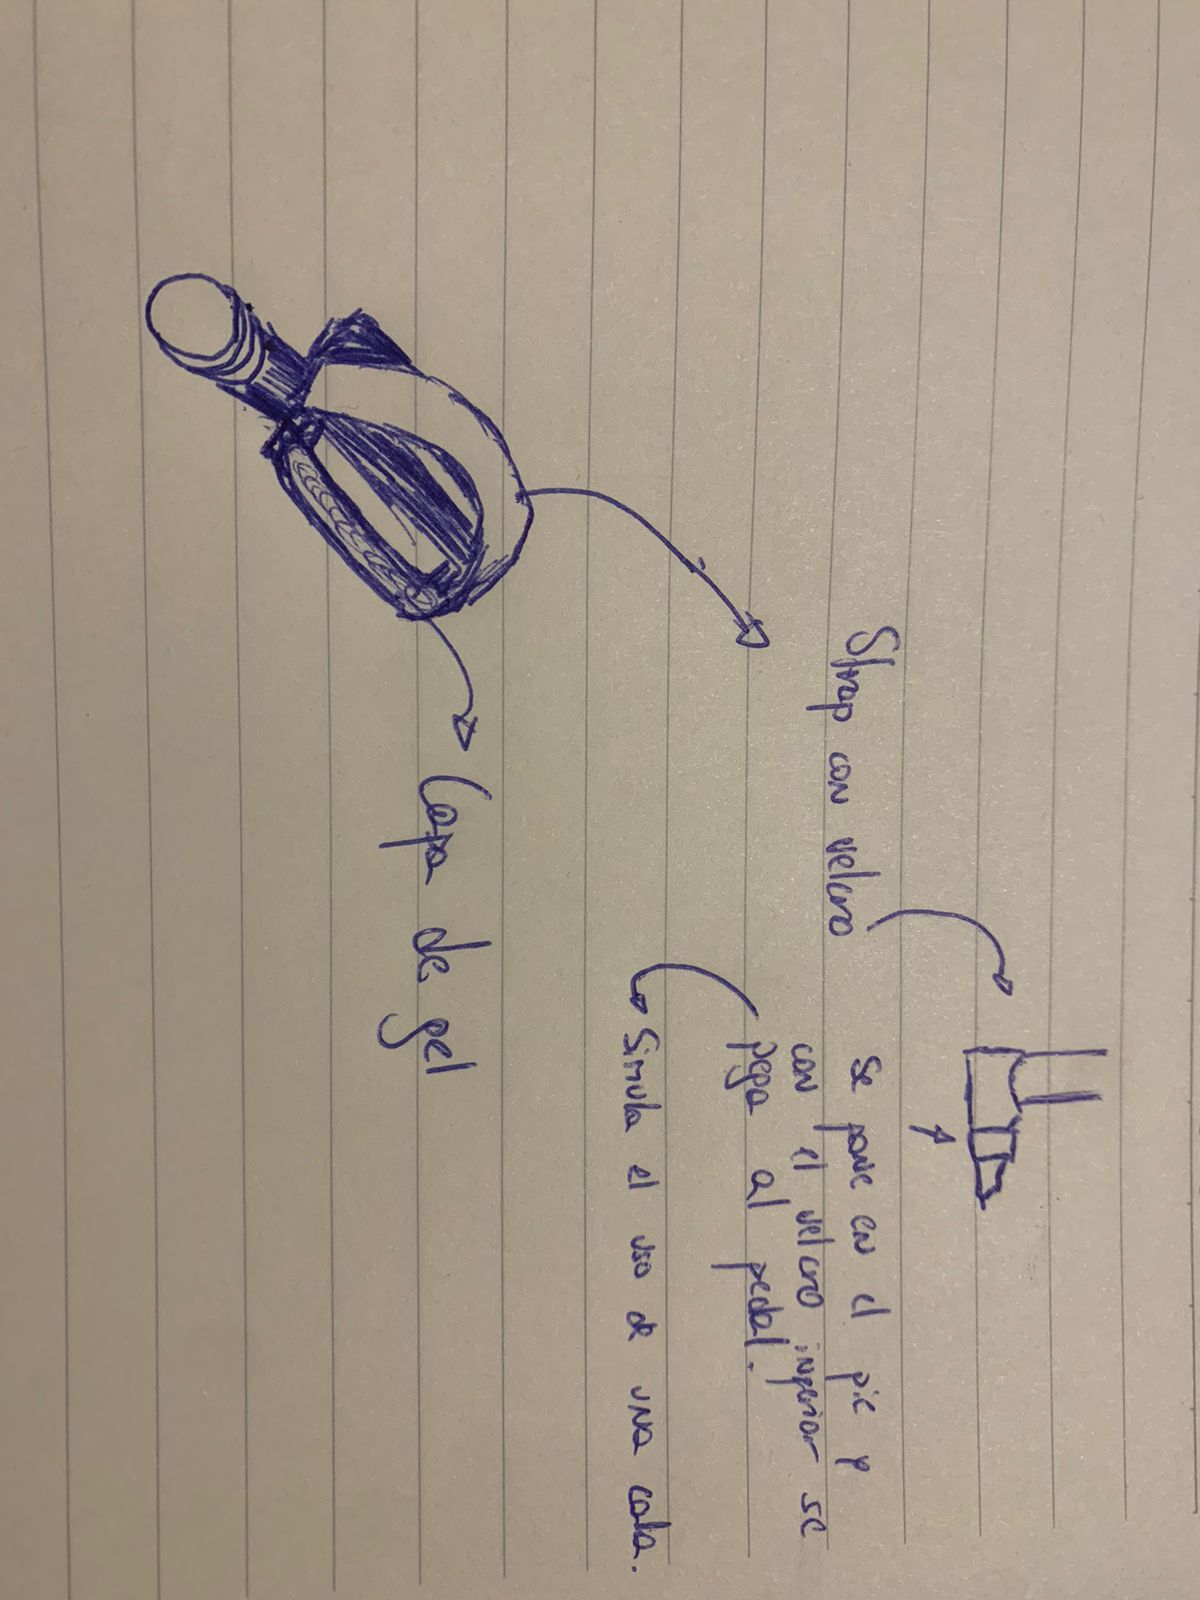 Strap con velcro
Se pone en el pie y
con el velcro inferior se
pega al pedal.
Simula el uso de una cala.
Capa de gel